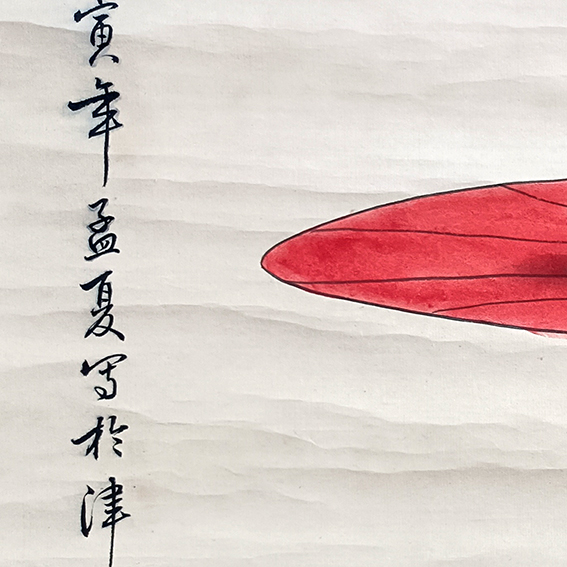 寅年孟夏写於津